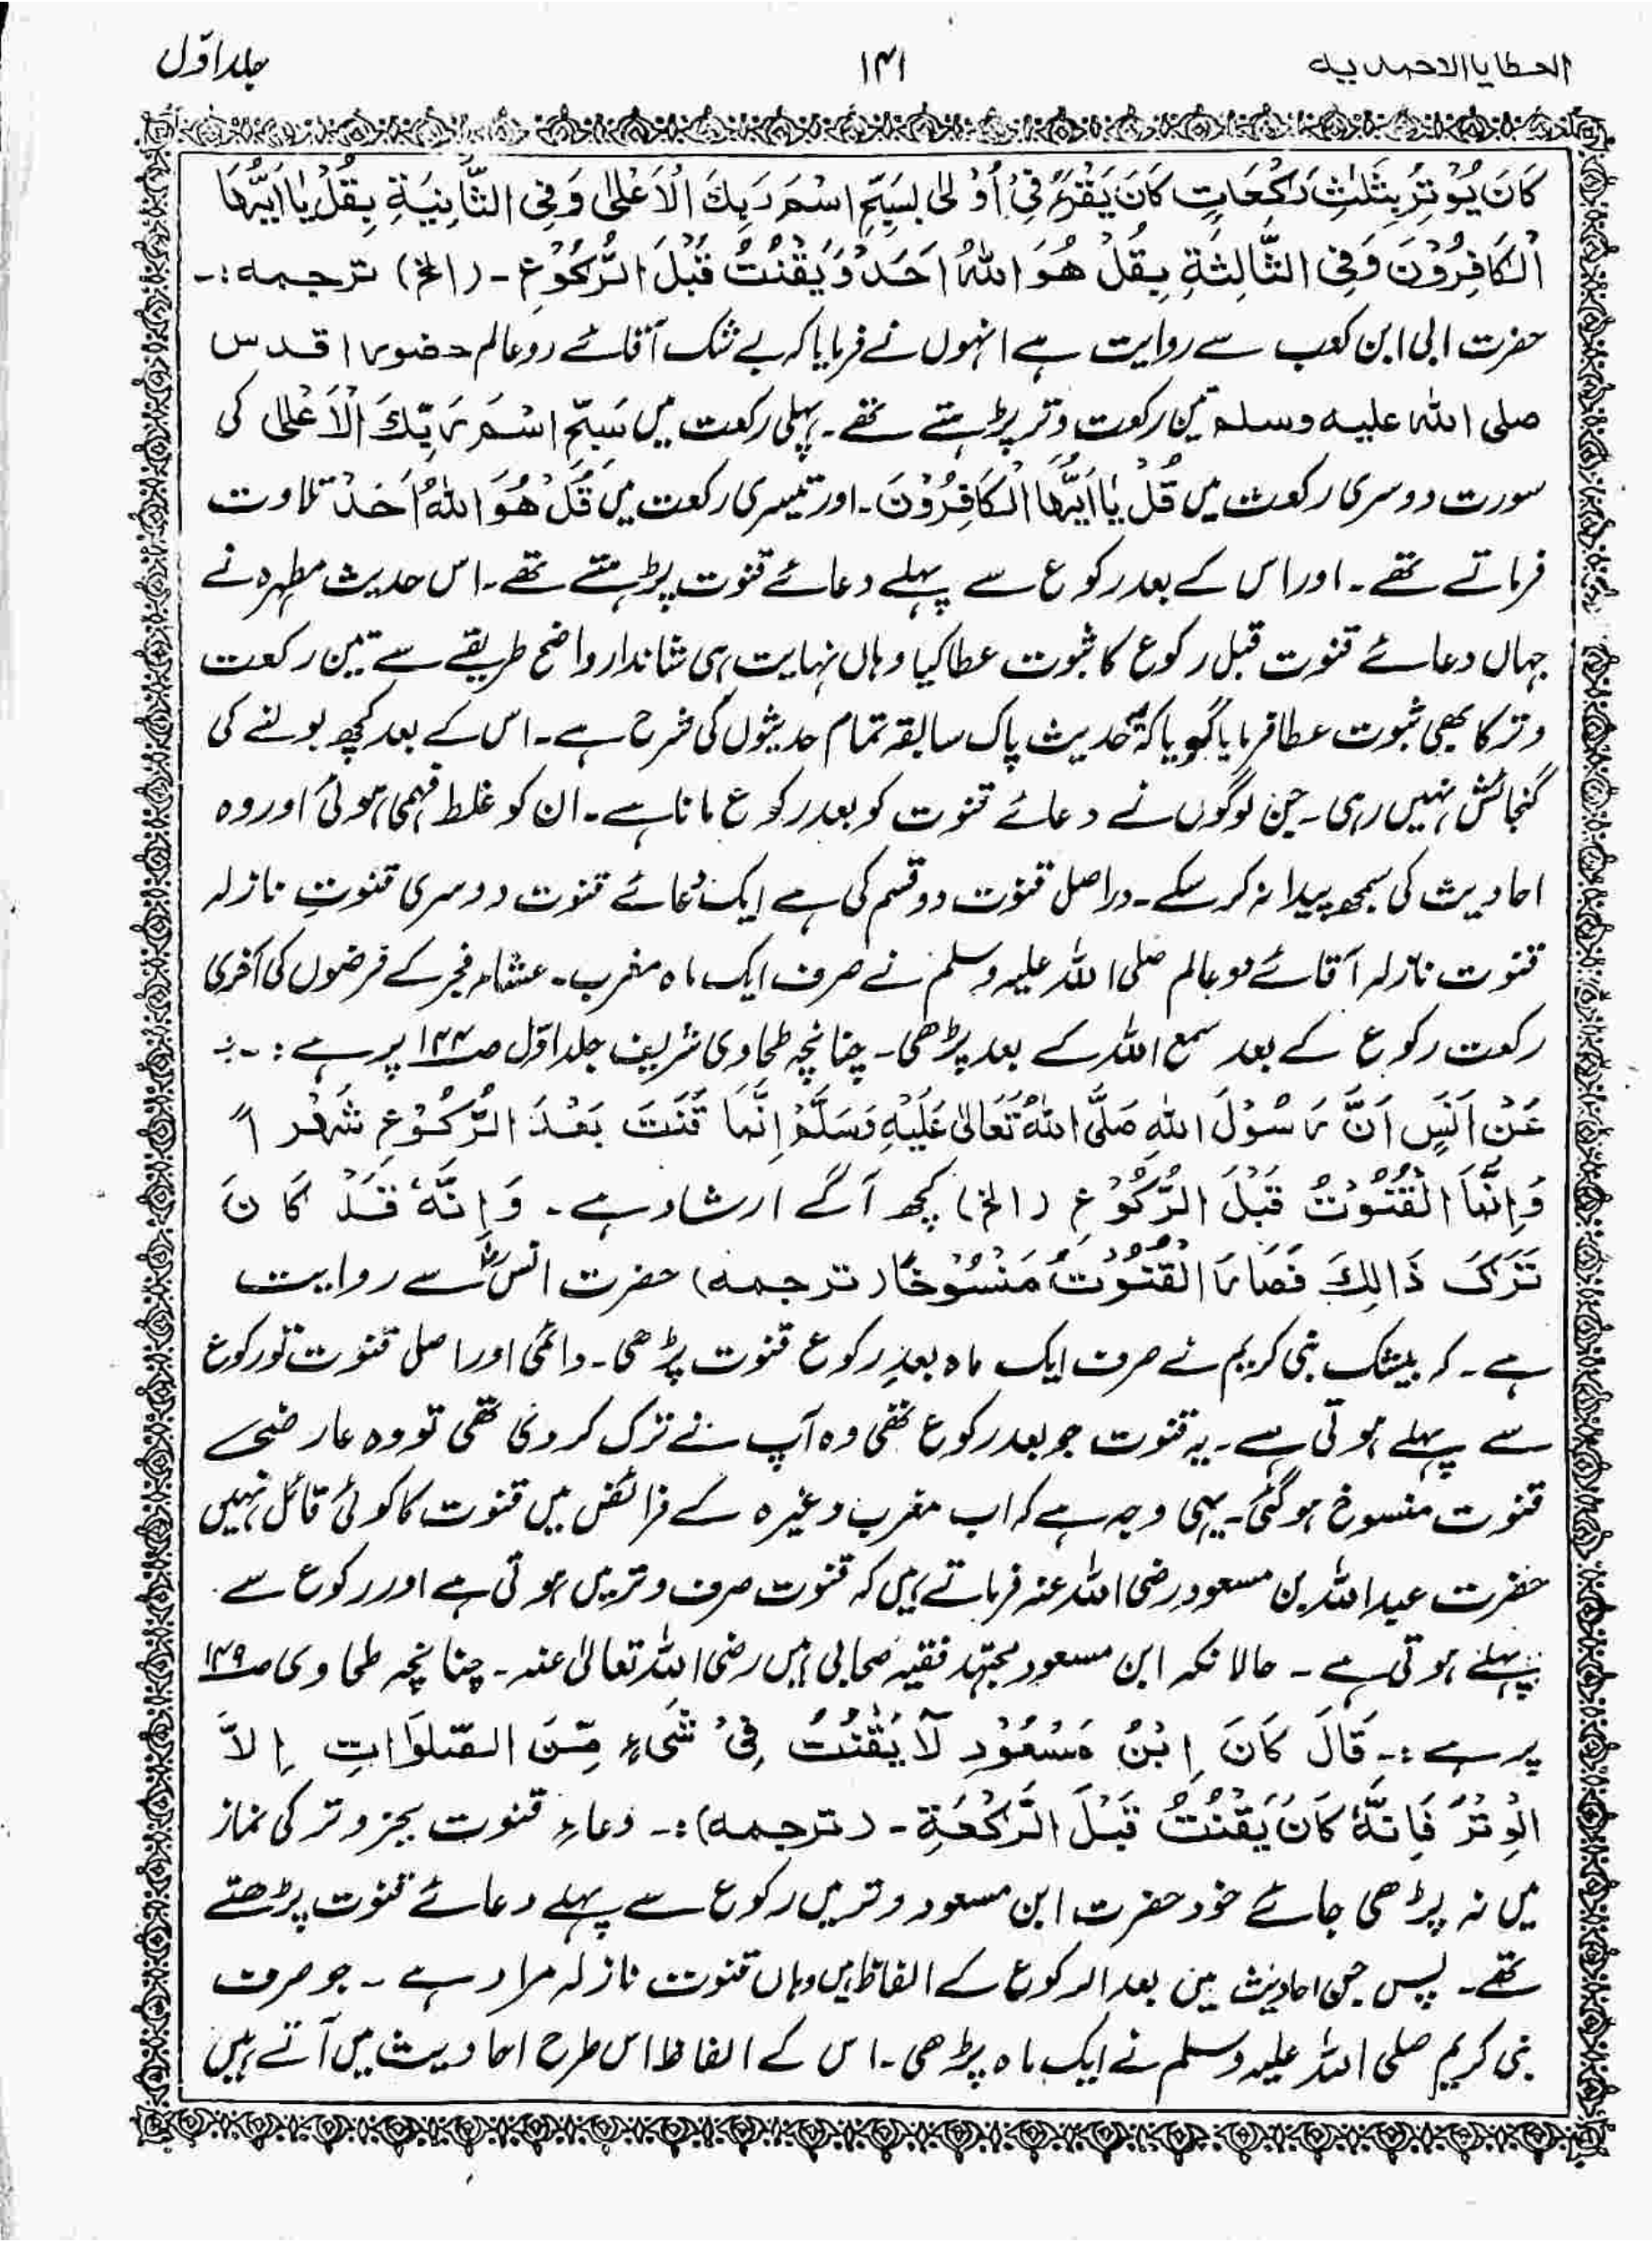 العطایا الاحمدیہ ۱۴۱ جلد اوّل
كَانَ يُوْتِرُ بِثَلٰثِ رَكْعَاتٍ كَانَ يَقْرَءُ فِيْ اُوْلٰى بِسَبِّحِ اسْمَ رَبِّكَ الْاَعْلٰى وَفِى الثَّانِيَةِ بِقُلْ يٰا اَيُّهَا
الْكَافِرُوْنَ وَفِى الثَّالِثَةِ بِقُلْ هُوَ اللهُ اَحَدٌ وَيَقْنُتُ قَبْلَ الرُّكُوْعِ ۔ (الخ) ترجمہ:۔
حضرت ابی ابن کعب سے روایت ہے انہوں نے فرمایا کہ بے شک آقائے دوعالم حضور اقدس
صلی اللہ علیہ وسلم تین رکعت وتر پڑہتے تھے۔ پہلی رکعت میں سَبِّحِ اسْمَ رَبِّكَ الْاَعْلٰى کی
سورت دوسری رکعت میں قُلْ يٰا اَيُّهَا الْكَافِرُوْنَ۔ اور تیسری رکعت میں قُلْ هُوَ اللهُ اَحَدٌ تلاوت
فرماتے تھے۔ اور اس کے بعد رکوع سے پہلے دعائے قنوت پڑہتے تھے۔ اس حدیث مطہرہ نے
جہاں دعائے قنوت قبل رکوع کا ثبوت عطا کیا وہاں نہایت ہی شاندار واضح طریقے سے تین رکعت
وتر کا بھی ثبوت عطا فرمایا گویا کہ یہ حدیث پاک سابقہ تمام حدیثوں کی شرح ہے۔ اس کے بعد کچھ بولنے کی
گنجائش نہیں رہی۔ جن لوگوں نے دعائے قنوت کو بعد رکوع مانا ہے۔ ان کو غلط فہمی ہوئی اور وہ
احادیث کی سمجھ پیدا نہ کر سکے۔ دراصل قنوت دو قسم کی ہے ایک دُعائے قنوت دوسری قنوتِ نازلہ
قنوت نازلہ آقائے دو عالم صلی اللہ علیہ وسلم نے صرف ایک ماہ مغرب۔ عشاء فجر کے فرضوں کی آخری
رکعت رکوع کے بعد سمع اللہ کے بعد پڑھی۔ چنانچہ طحاوی شریف جلد اوّل صـ۱۴۴ پر ہے :۔
عَنْ اَنَسٍ اَنَّ رَسُوْلَ اللهِ صَلَّى اللهُ تَعَالٰى عَلَيْهِ وَسَلَّمْ اِنَّمَا قَنَتَ بَعْدَ الرُّكُوْعِ شَهْرًا
وَاِنَّمَا الْقُنُوْتُ قَبْلَ الرُّكُوْعِ (الخ) کچھ آگے ارشاد ہے۔ وَاِنَّهٗ قَدْ كَانَ
تَرَكَ ذَالِكَ فَصَارَ الْقُنُوْتُ مَنْسُوْخًا (ترجمہ) حضرت انسؓ سے روایت
ہے۔ کہ بیشک نبی کریم نے صرف ایک ماہ بعدِ رکوع قنوت پڑھی۔ دائمی اور اصل قنوت تو رکوع
سے پہلے ہوتی ہے۔ یہ قنوت جو بعد رکوع تھی وہ آپ نے ترک کر دی تھی تو وہ عارضی
قنوت منسوخ ہو گئی۔ یہی وجہ ہے کہ اب مغرب وغیرہ کے فرائض میں قنوت کا کوئی قائل نہیں
حضرت عبد اللہ بن مسعود رضی اللہ عنہ فرماتے ہیں کہ قنوت صرف وتر میں ہوتی ہے اور رکوع سے
پہلے ہوتی ہے ۔ حالانکہ ابن مسعود مجتہد فقیہ صحابی ہیں رضی اللہ تعالیٰ عنہ۔ چنانچہ طحاوی صـ۱۴۹
پر ہے :۔ قَالَ كَانَ اِبْنُ مَسْعُوْدٍ لَا يَقْنُتُ فِىْ شَىْءٍ مِّنَ الصَّلَوَاتِ اِلَّا
الْوِتْرَ فَاِنَّهٗ كَانَ يَقْنُتُ قَبْلَ الرَّكْعَةِ ۔ (ترجمہ):۔ دعاءِ قنوت بجز وتر کی نماز
میں نہ پڑھی جائے خود حضرت ابن مسعود وتر میں رکوع سے پہلے دعائے قنوت پڑھتے
تھے۔ پس جن احادیث میں بعد الرکوع کے الفاظ ہیں وہاں قنوت نازلہ مراد ہے ۔ جو صرف
نبی کریم صلی اللہ علیہ وسلم نے ایک ماہ پڑھی۔ اس کے الفاظ اس طرح احادیث میں آتے ہیں